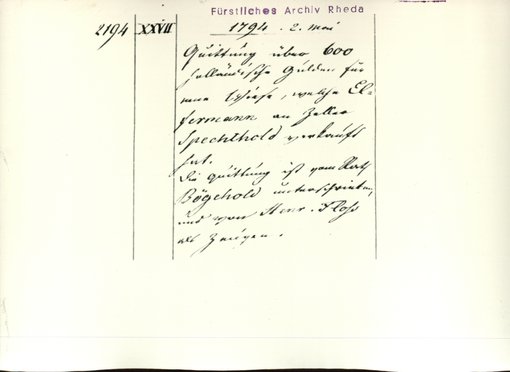 Fürstliches Archiv Rheda
2194 XXVII 1794. 2. Mai
Quittung über 600
holländische Gulden für
eine Wiese, welche El-
fermann an Zeller
Spechthold verkauft
hat.
Die Quittung ist vom Rath
Bögehold unterschrieben,
und von Henr. Kloss
als Zeugen.